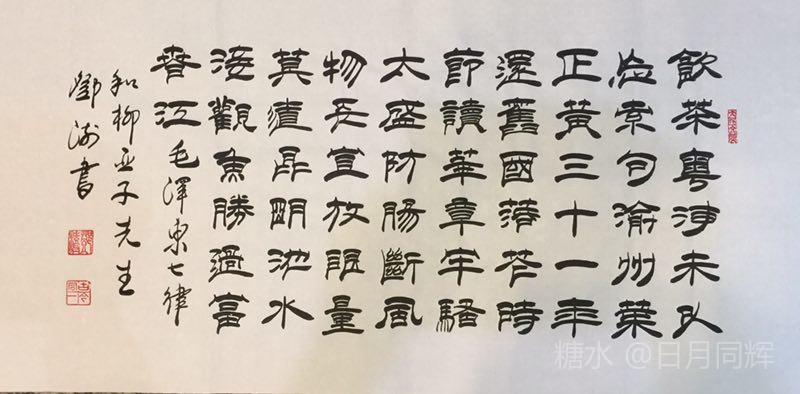 飲茶粵海未能
忘索句渝州葉
正黃三十一年
還舊國落花時
節讀華章牢騷
太盛防腸斷風
物長宜放眼量
莫道昆明池水
淺觀魚勝過富
春江 毛澤東七律
和柳亚子先生
劉書
糖水 @日月同辉